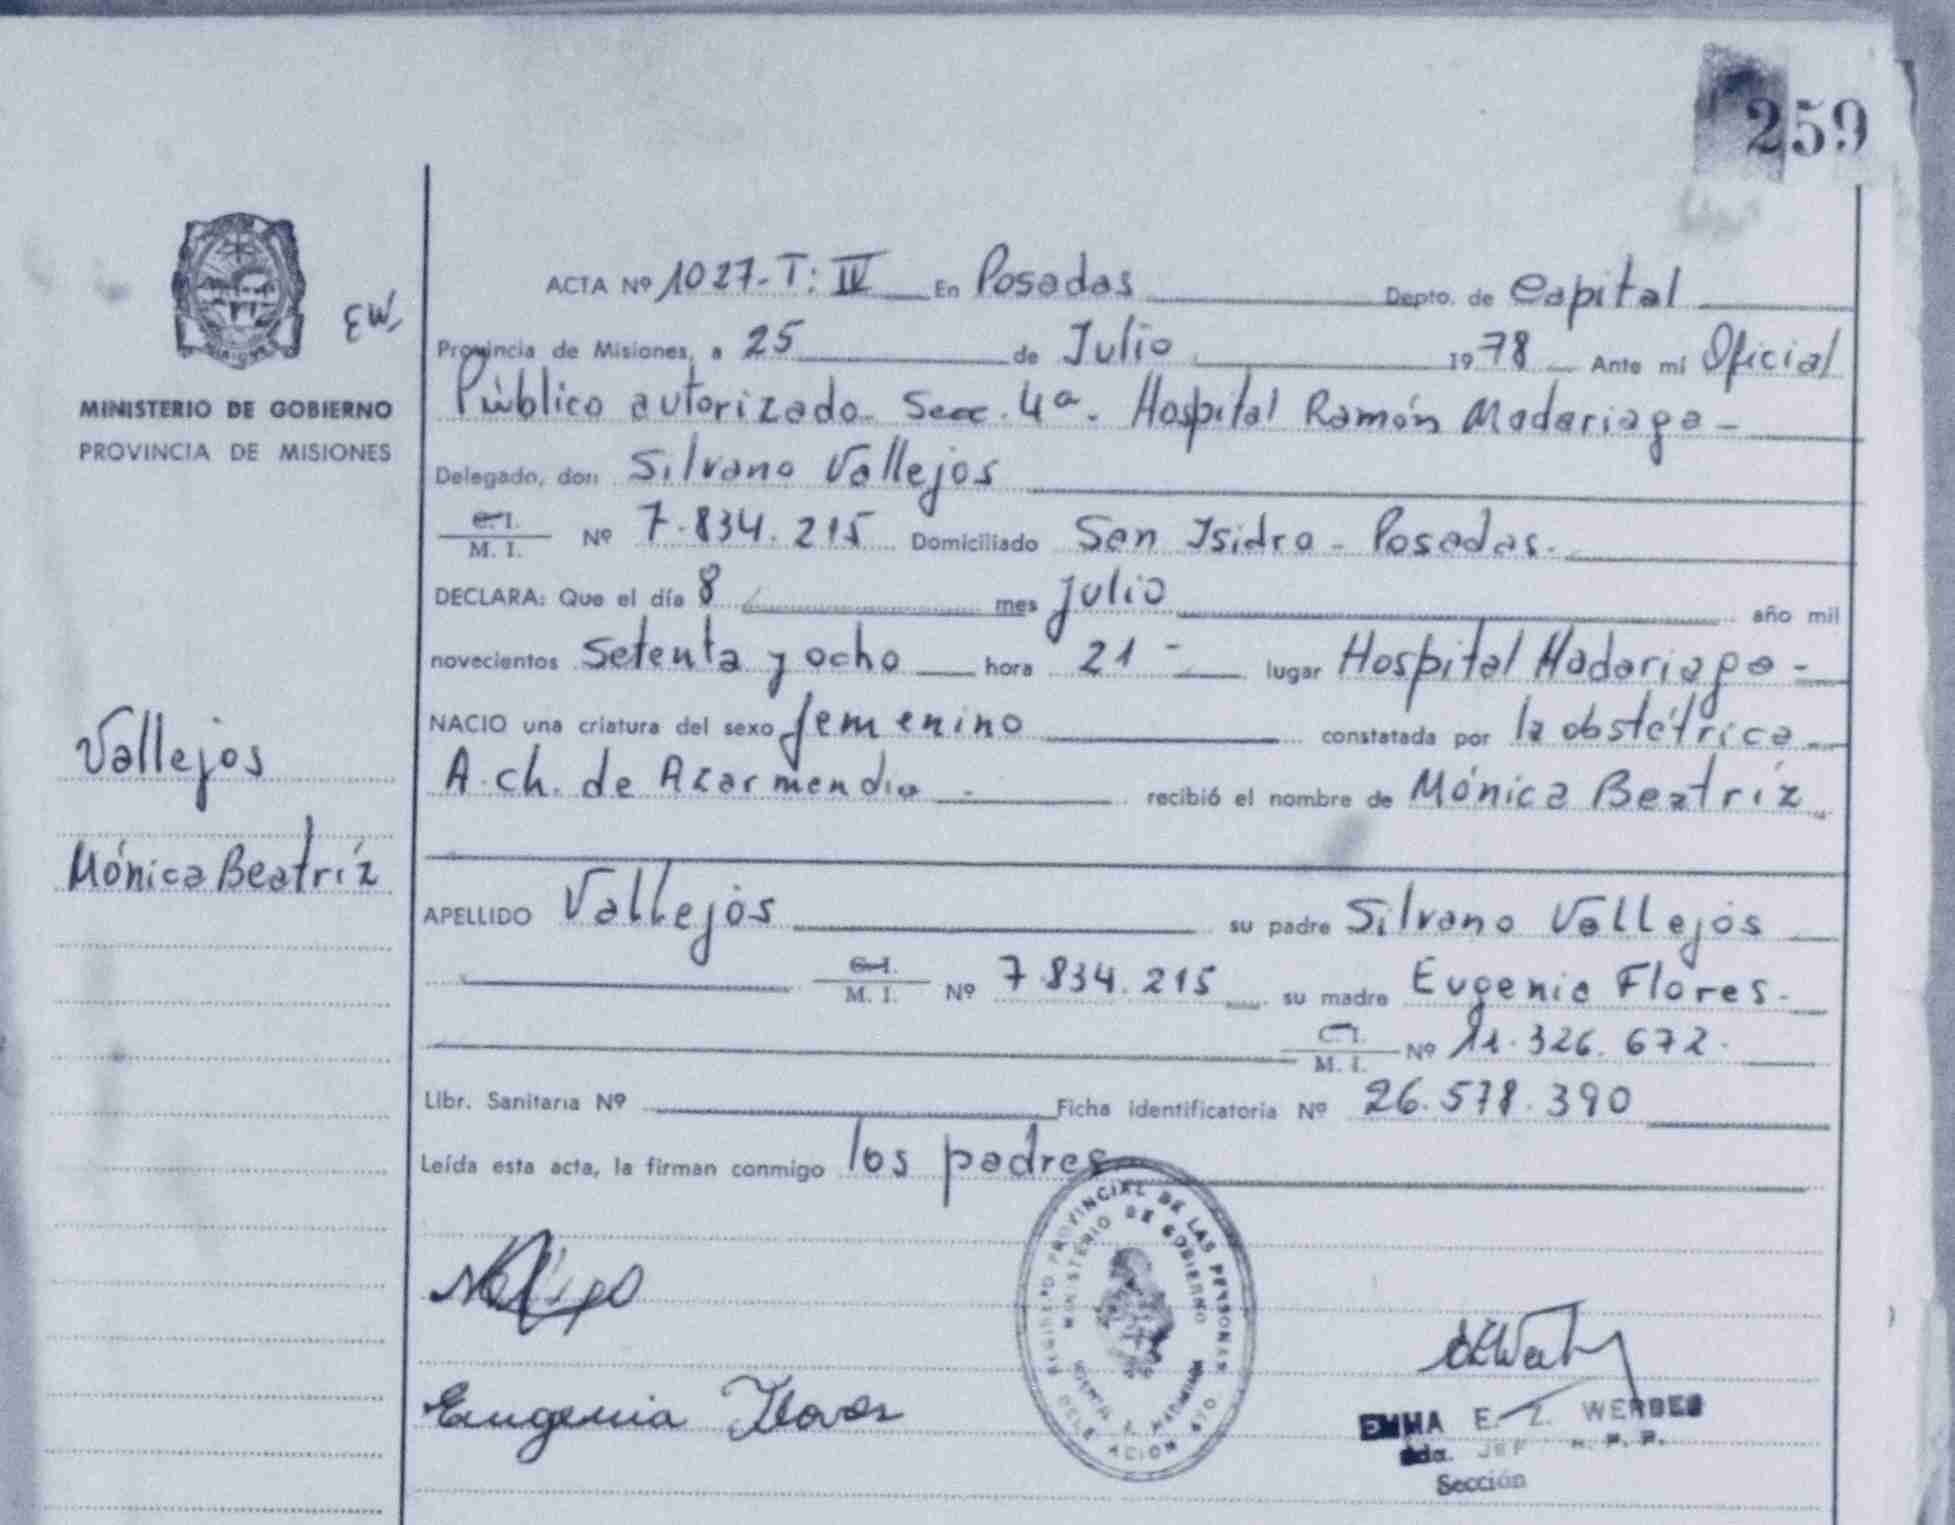 259
EW
MINISTERIO DE GOBIERNO
PROVINCIA DE MISIONES
ACTA Nº 1027-T: IV En Posadas Depto. de Capital
Provincia de Misiones, a 25 de Julio 1978 Ante mi Oficial
Público autorizado- Secc. 4ª. Hospital Ramón Madariaga-
Delegado, don Silvano Vallejos
C. I.
M. I. Nº 7.834.215 Domiciliado San Isidro - Posadas.
DECLARA: Que el día 8 mes julio año mil
novecientos setenta y ocho hora 21 - lugar Hospital Madariaga -
NACIO una criatura del sexo femenino constatada por la obstétrica
A. ch. de Azarmendia - recibió el nombre de Mónica Beatríz
Vallejos
Mónica Beatríz
APELLIDO Vallejos su padre Silvano Vallejos
C. I.
M. I. Nº 7.834.215 su madre Eugenia Flores.
C. I.
M. I. Nº 11.326.672.
Libr. Sanitaria Nº Ficha identificatoria Nº 26.578.390
Leída esta acta, la firman conmigo los padres
REGISTRO PROVINCIAL DE LAS PERSONAS
MINISTERIO DE GOBIERNO
Eugenia Flores
EMMA E. Z. WERBES
Sección